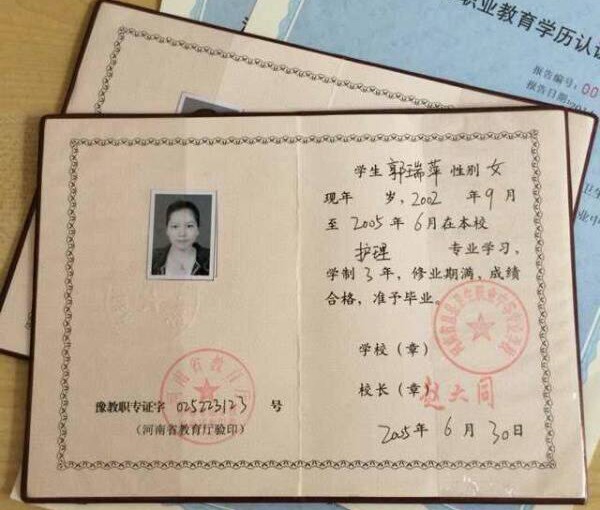 职业教育学历认证
报告编号：00
报告日期
学生 郭瑞萍 性别 女
现年 岁，2002 年 9 月
至 2005 年 6 月在本校
护理 专业学习，
学制 3 年，修业期满，成绩
合格，准予毕业。
学校（章）
校长（章）赵大同
2005 年 6 月 30 日
河南省教育厅
豫教职专证字 025223123 号
（河南省教育厅验印）